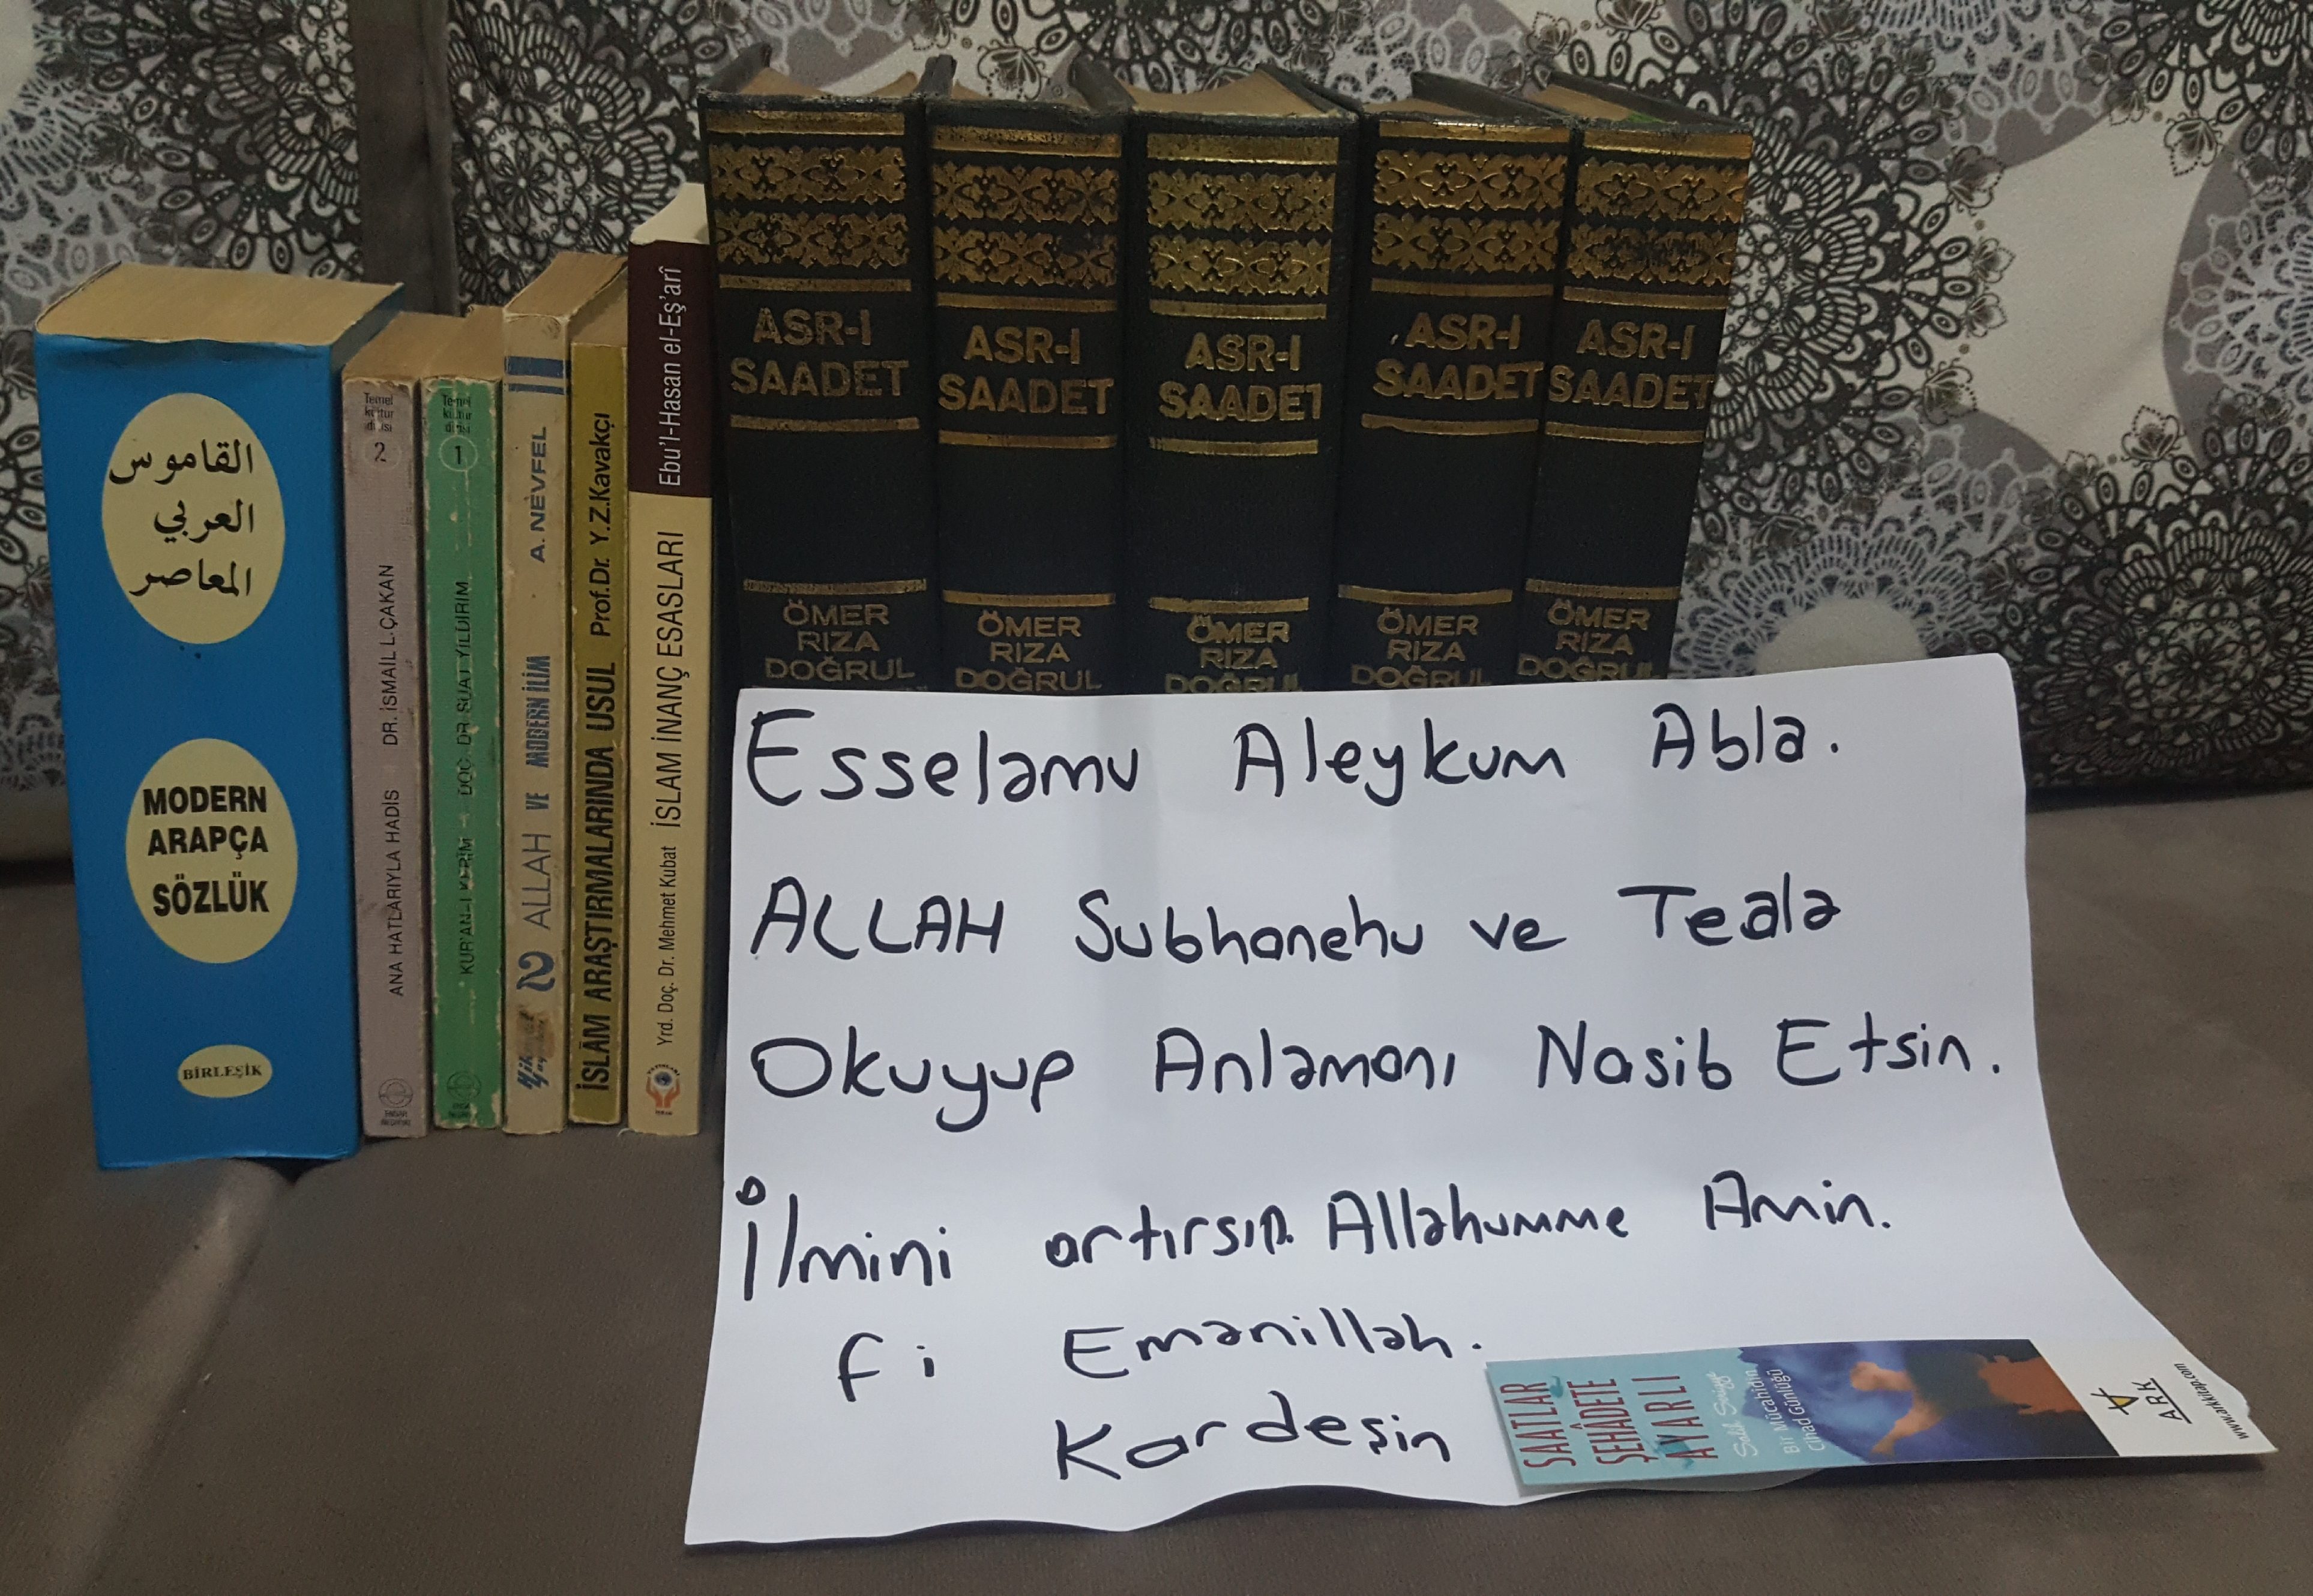 القاموس
العربي
المعاصر
MODERN
ARAPÇA
SÖZLÜK
BİRLEŞİK
Temel
kültür
dizisi
2
ANA HATLARIYLA HADİS DR. İSMAİL L. ÇAKAN
Temel
kültür
dizisi
1
KUR'AN-I KERİM DOÇ. DR. SUAT YILDIRIM
2 ALLAH VE MODERN İLİM A. NEVFEL
İSLÂM ARAŞTIRMALARINDA USUL Prof.Dr. Y.Z.Kavakçı
Yrd. Doç. Dr. Mehmet Kubat İSLAM İNANÇ ESASLARI Ebu'l-Hasan el-Eş'arî
ASR-I
SAADET
ÖMER
RIZA
DOĞRUL
ASR-I
SAADET
ÖMER
RIZA
DOĞRUL
ASR-I
SAADET
ÖMER
RIZA
DOĞRUL
ASR-I
SAADET
ÖMER
RIZA
DOĞRUL
ASR-I
SAADET
ÖMER
RIZA
DOĞRUL
Esselamu Aleykum Abla.
ALLAH Subhanehu ve Teala
Okuyup Anlamanı Nasib Etsin.
İlmini artırsın. Allahumme Amin.
fi Emanillah.
Kardeşin
SAATLAR
ŞEHÂDETE
AYARLI
Bir Mücahidin
Cihad Günlüğü
ARK
www.arkkitap.com